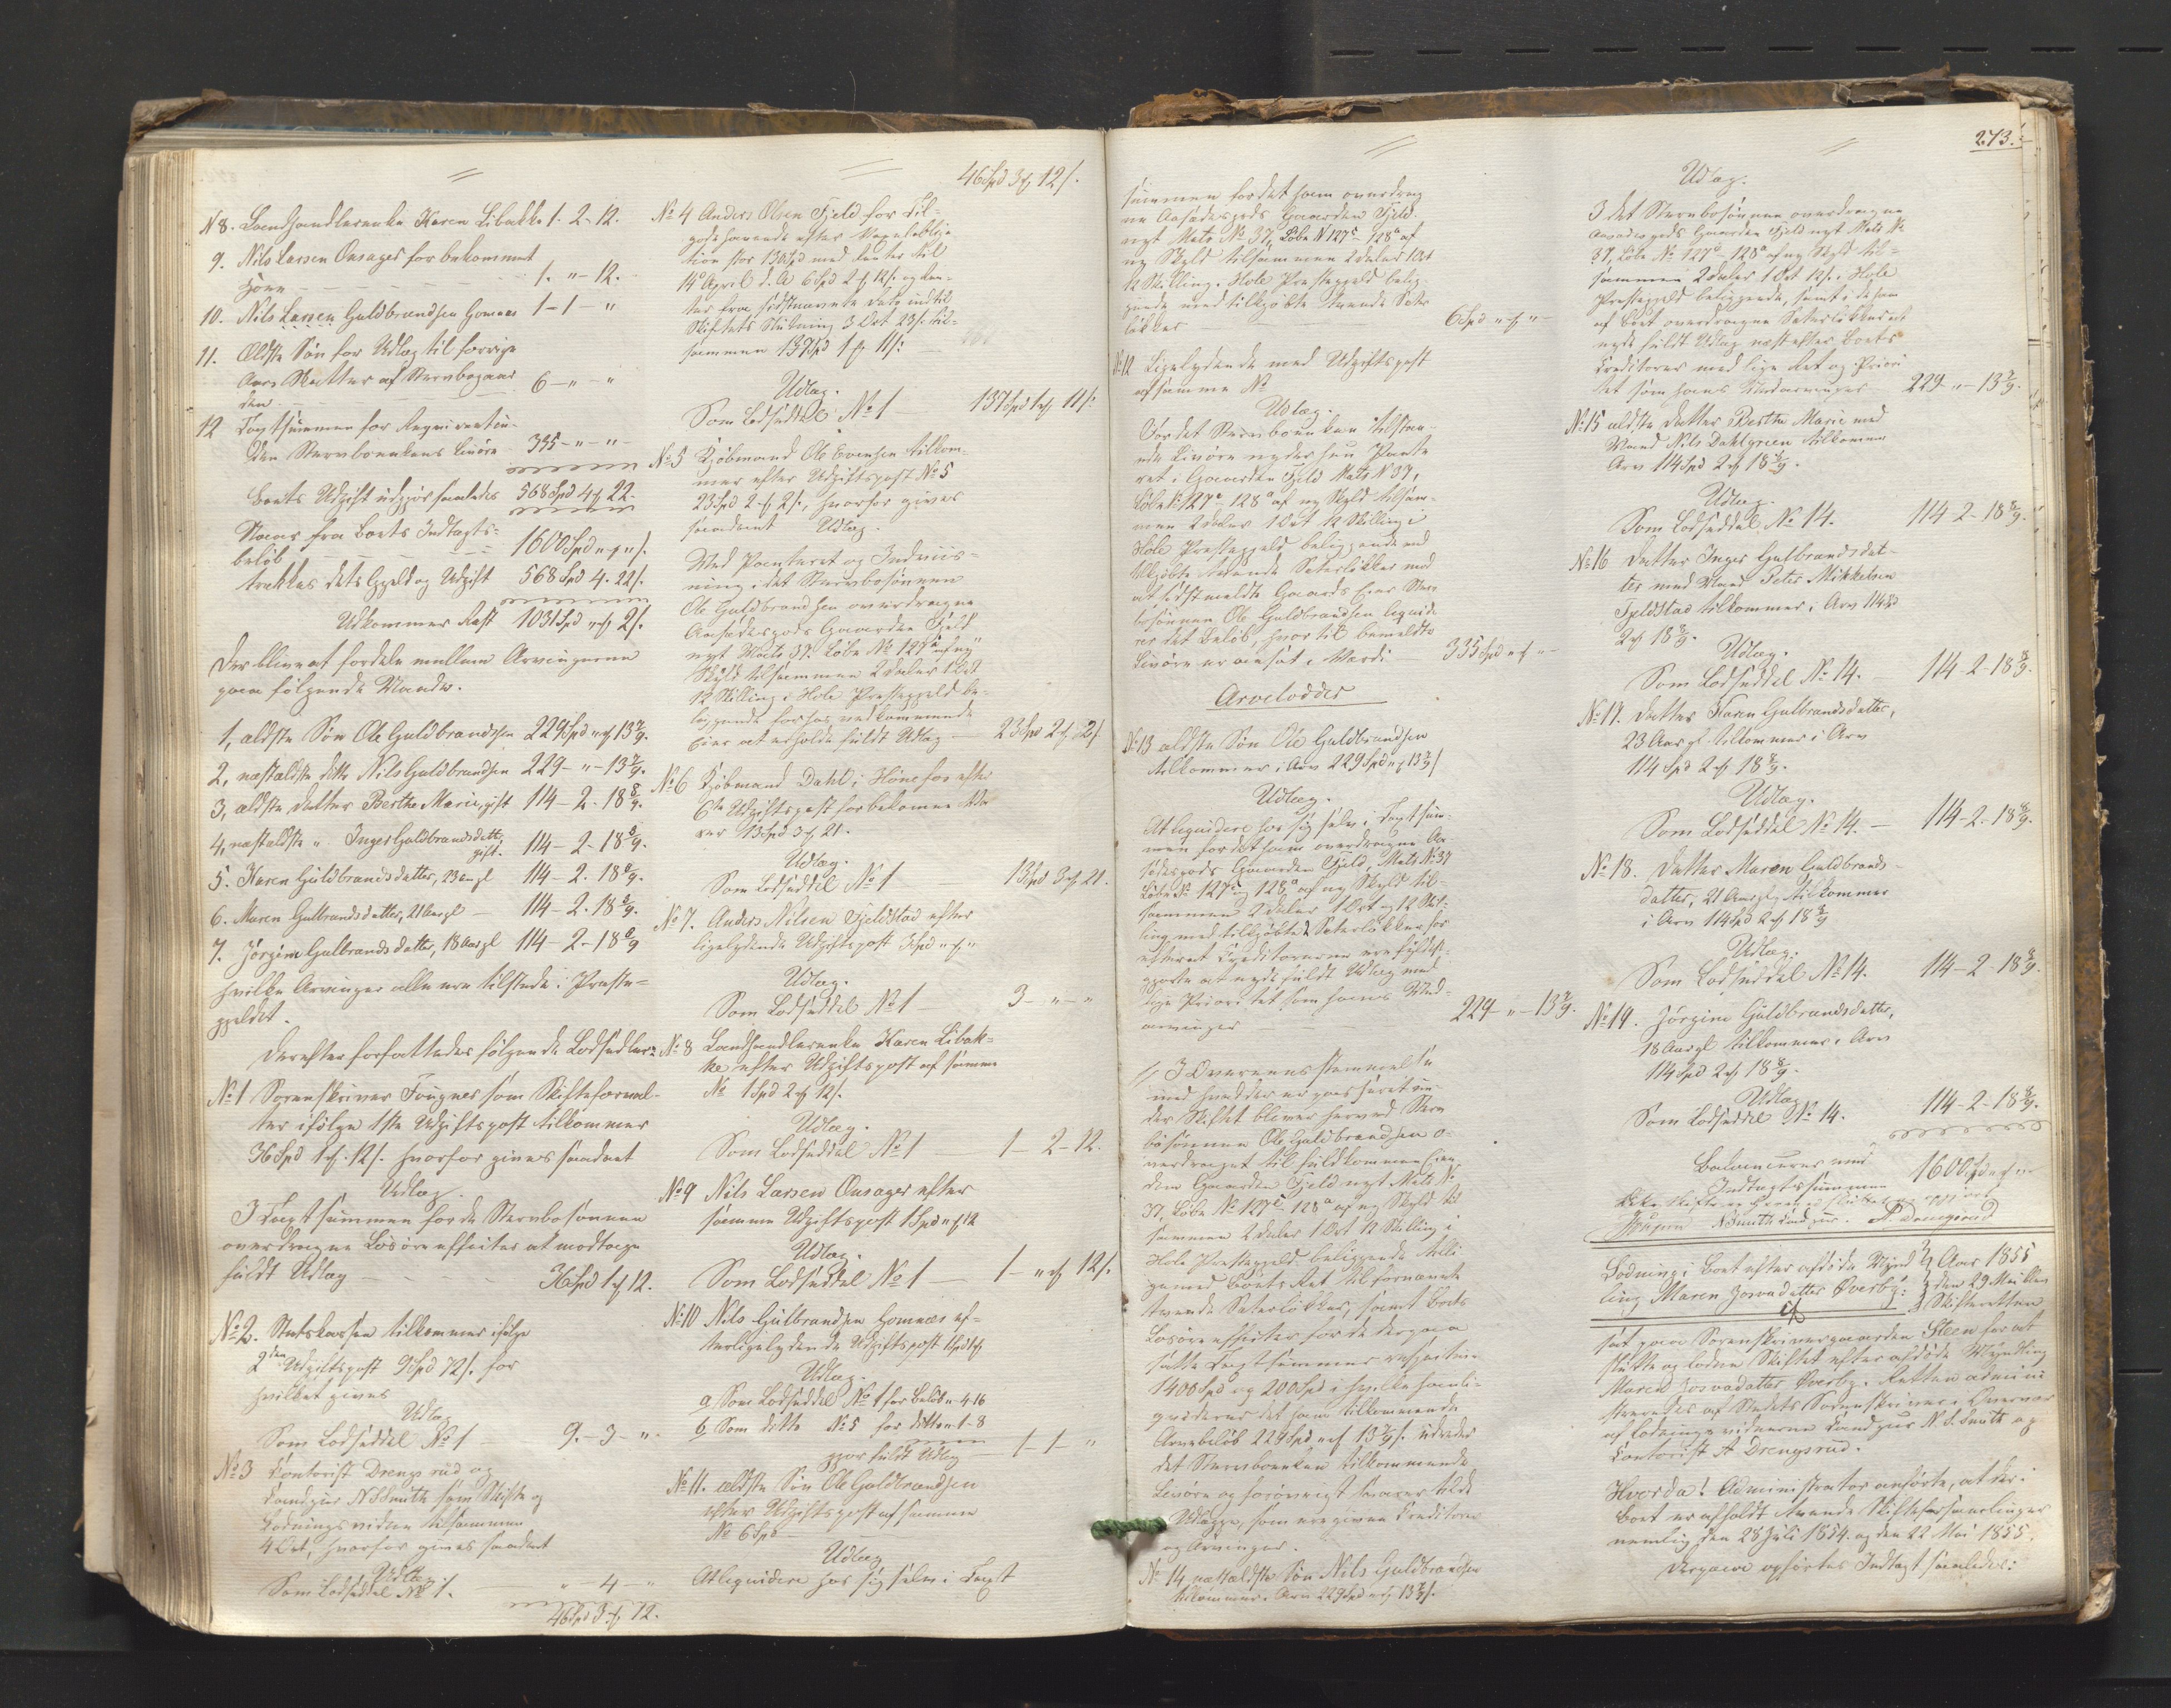 N 8. Landhandlerenke Karen Libakke 1-2-12.
9. Nils Larsen Onsager for bekommet
1. " - 12.
10. Nils Larsen Guldbrandsen Gomnæs 1-1-"
11. Ældste Søn for Udlæg til forrige
Aars Skatter af Stervbogaar
den 6-"-"
12 Taxtsummen for
den Stervboenkens Livøre 335-"-"-
Boets Udgift udgjør saaledes 568 Spd 4 ₰ 22.
Naar fra Boets Indtægts-
beløb 1600 Spd " ₰ " /.
trækkes dets Gjeld og Udgift 568 Spd 4. 22/.
Udkommer Rest 1031 Spd " ₰ 2/.
Der bliver at fordele mellem Arvingerne
paa følgende Maade.
1, ældste Søn Ole Guldbrandsen 229 Spd " ₰ 13 7/9.
2, næstældste ditto Nils Guldbrandsen 229-"-13 7/9.
3, ældste Datter Berthe Marie, gift 114-2-18 8/9.
4, næstældste " Inger Guldbrandsdatt,
gift. 114-2-18 8/9.
5. Karen Guldbrandsdatter, 23 aar gl 114-2-18 8/9.
6. Maren Gulbrandsdatter, 21 Aar gl - 114-2-18 8/9.
7. Jørgine Gulbrandsdatter, 18 Aar gl 114-2-18 8/9
hvilke Arvinger alle ere tilstede i Præste-
gjeldet.
Derefter forfattedes følgende Lodsedler:
No 1 Sorenskriver Fougner som Skifteforval-
ter ifølge 1ste Udgiftspost tilkommer
36 Spd 1 ₰ 12/. hvorfor gives saadant
Udlæg.
I Taxtsummen for de Stervbosønnen
overdragne Løsøreeffecter at modtage
fuldt Udlæg 36 Spd 1 ₰ 12.
No 2. Statskassen tilkommer ifølge
2den Udgiftspost 9 Spd 72/. for
hvilket gives
Udlæg
Som Lodseddel No 1 9.-3-".
No 3 Contorist Drengsrud og
Landgur N S Smith som Skifte og
Lodningsvidner tilsammen
4 Ort, hvorfor gives saadant
Udlæg
Som Lodseddel No 1. "-4-"
46 Spd 3 ₰ 12.
46 Spd 3 ₰ 12/.
No 4 Anders Olsen Fjeld for Til-
godehavende efter
tion stor 130 Spd med Renter til
14 April d. A. 6 Spd 2 ₰ 12/. og Ren-
ter fra sidstnævnte Dato indtil
Skiftets Slutning 3 Ort 23/. til-
sammen 137 Spd 1 ₰ 11/:
Udlæg.
Som Lodseddel No 1 137 Spd 1 ₰ 11/:
No 5 Kjøbmand Ole Evensen tilkom-
mer efter Udgiftspost No 5
23 Spd 2 ₰ 2/., hvorfor gives
saadant Udlæg.
Med Panteret og Indviis-
ning i det Stervbosønnen
Ole Guldbrandsen overdragne
Aasædesgods Gaarden Fjeld
nyt Matr 37. Løbe No 127 af ny
Skyld tilsammen 2 Daler 1 Ort
12 Skilling i Hole Præstegjeld be-
liggende for hos vedkommende
Eier at erholde fuldt Udlæg 23 Spd 2 ₰ 2/
No 6 Kjøbmand Dahl i Hønefos efter
6te Udgiftspost for bekomne Va-
rer 13 Spd 3 ₰ 21.
Udlæg.
Som Lodseddel No 1 13 Spd 3 ₰ 21.
No 7. Anders Nilsen Fjeldstad efter
ligelydende Udgiftspost 3 Spd " ₰ "
Udlæg.
Som Lodseddel No 1 3-"-"
No 8 Landhandlerenke Karen Libak-
ke efter Udgiftspost af samme
No 1 Spd 2 ₰ 12/.
Udlæg.
Som Lodseddel No 1 1-2-12.
No 9 Nils Larsen Onsager efter
samme Udgiftspost 1 Spd " ₰ 12
Udlæg.
Som Lodseddel No 1 1-" ₰ 12/.
No 10 Nils Gulbrandsen Gomnæs ef-
ter ligelydende Udgiftspost 1 Spd 1 ₰
Udlæg.
a Som Lodseddel No 1 for Beløb "-4-16
b Som ditto No 5 for ditto "-1-8
gjør fuldt Udlæg 1-1-"
No 11. ældste Søn Ole Guldbrandsen
efter Udgiftspost af samme
No 6 Spd
Udlæg
At liqvidere hos sig selv i Taxt
summen for det ham overdrag
ne Aasædesgods Gaarden Fjeld
nyt Matr No 37, Løbe N 127c - 128a af
ny Skyld tilsammen 2 Daler 1 Ort
12 Skilling i Hole Præstegjeld belig-
gende med tilkjøbte tvende Sæter
løkker 6 Spd " ₰ "-
No 12 Ligelydende med Udgiftspost
af samme No
Udlæg.
For det Stervboenken tilstaa-
ede Livøre nyder hun Pante
ret i Gaarden Fjeld Matr N 37,
Løbe No 127c - 128a af ny Skyld tilsam-
men 2 Daler 1 Ort 12 Skilling i
Hole Præstegjeld beliggende med
tilkjøbte tvende Sæterløkker med
at sidstmeldte Gaards Eier Sterv
bosønnen Ole Guldbrandsen liqvide-
rer det Beløb, hvortil bemeldte
Livøre er ansat i Værdi 335 Spd " ₰ "-
Arvelodder
No 13 ældste Søn Ole Guldbrandsen
tilkommer i Arv 229 Spd " ₰ 13 7/9/
Udlæg.
At liqvidere hos sig selv i Taxtsum-
men for det ham overdragne Aa-
sædesgods Gaarden Fjeld, Matr No 37
Løbe No 127c og 128a af ny Skyld til-
sammen 2 Daler 1 Ort og 12 Skil-
ling med tilkjøbte 2 Sæterløkker for
efterat Creditorerne ere fyldest-
gjorte at nyde fuldt Udlæg med
lige Prioritet som hans Med-
arvinger 229 " - 13 7/9.
I Overeensstemmelse
med hvad der er passeret un-
der Skiftet bliver herved Sterv
bosønnen Ole Guldbrandsen o-
verdraget til fuldkommen Eien-
dom Gaarden Fjeld nyt Matr No
37, Løbe No 127c 128a af ny Skyld til
sammen 2 Daler 1 Ort 12 Skilling i
Hole Præstegjeld beliggende tilli-
gemed Boets Ret til fornævnte
tvende Sæterløkker, samt Boets
Løsøreeffecter for de derpaa
satte Taxtsummer respective
1400 Spd og 200 Spd i hvilke han li-
qviderer det ham tilkommende
Arvebeløb 229 Spd " ₰ 13 7/9/. udreder
det Stervboenken tilkommende
Livøre og forøvrigt svarer til de
Udlægge, som ere givne Creditorer
og Arvinger.
No 14 næstældste Søn Nils Guldbrandsen
tilkommer i Arv 229 Spd " ₰ 13 7/9/.
273.
Udlæg.
I det Stervbosønnen overdragne
Aasædesgods Gaarden Fjeld nyt Matr No
37, Løbe No 127c - 128a af ny Skyld til-
sammen 2 Daler 1 Ort 12/. i Hole
Præstegjeld beliggende, samt i de ham
af Boet overdragne Sæterløkker at
nyde fuldt Udlæg næstefter Boets
Creditorer med lige Ret og Priori
tet som hans Medarvinger 229-"-13 7/9.
No 15 ældste Datter Berthe Marie med
Mand Nils Dahlgreen tilkommer
Arv 114 Spd 2 ₰ 18 8/9.
Udlæg.
Som Lodseddel No 14. 114-2-18 8/9.
No 16 Datter Inger Gulbrandsdat-
ter med Mand Peter Mikkelsen
Fjeldstad tilkommer i Arv 114 Spd
2 ₰ 18 8/9.
Udlæg.
Som Lodseddel No 14. 114-2-18 8/9.
No 17. Datter Karen Gulbrandsdatter,
23 Aar gl tilkommer i Arv
114 Spd 2 ₰ 18 8/9.
Udlæg.
Som Lodseddel No 14. - 114-2-18 8/9.
No 18. Datter Maren Guldbrands-
datter, 21 Aar gl. tilkommer
i Arv 114 Spd 2 ₰ 18 8/9
Udlæg.
Som Lodseddel No 14. 114-2-18 8/9.
No 19. Jørgine Guldbrandsdatter,
18 Aar gl tilkommer i Arv
114 Spd 2 ₰ 18 8/9.
Udlæg
Som Lodseddel No 14. 114-2-18 8/9.
Balancerer med
Indtægtssummen 1600 Spd " ₰ "
Fougner N Smith Landgur. A. Drengsrud
Lodning i Boet efter afdøde Mynd
ling Maren Josvadatter Øverby:
Aar 1855
den 29 Mai blev
Skifteretten
sat paa Sorenskrivergaarden Steen for at
slutte og lodne Skiftet efter afdøde Myndling
Maren Josvadatter Øverby. Retten admini
streredes af Stedets Sorenskriver i Overvær
af Lodningsvidnerne Landgur N. S. Smith og
Contorist A Drengsrud.
Hvorda! Administrator anførte, at der i
Boet er afholdt tvende Skiftesamlinger
nemlig den 28 Juli 1854. og den 22 Mai 1855.
Derpaa opførtes Indtægt saaledes: